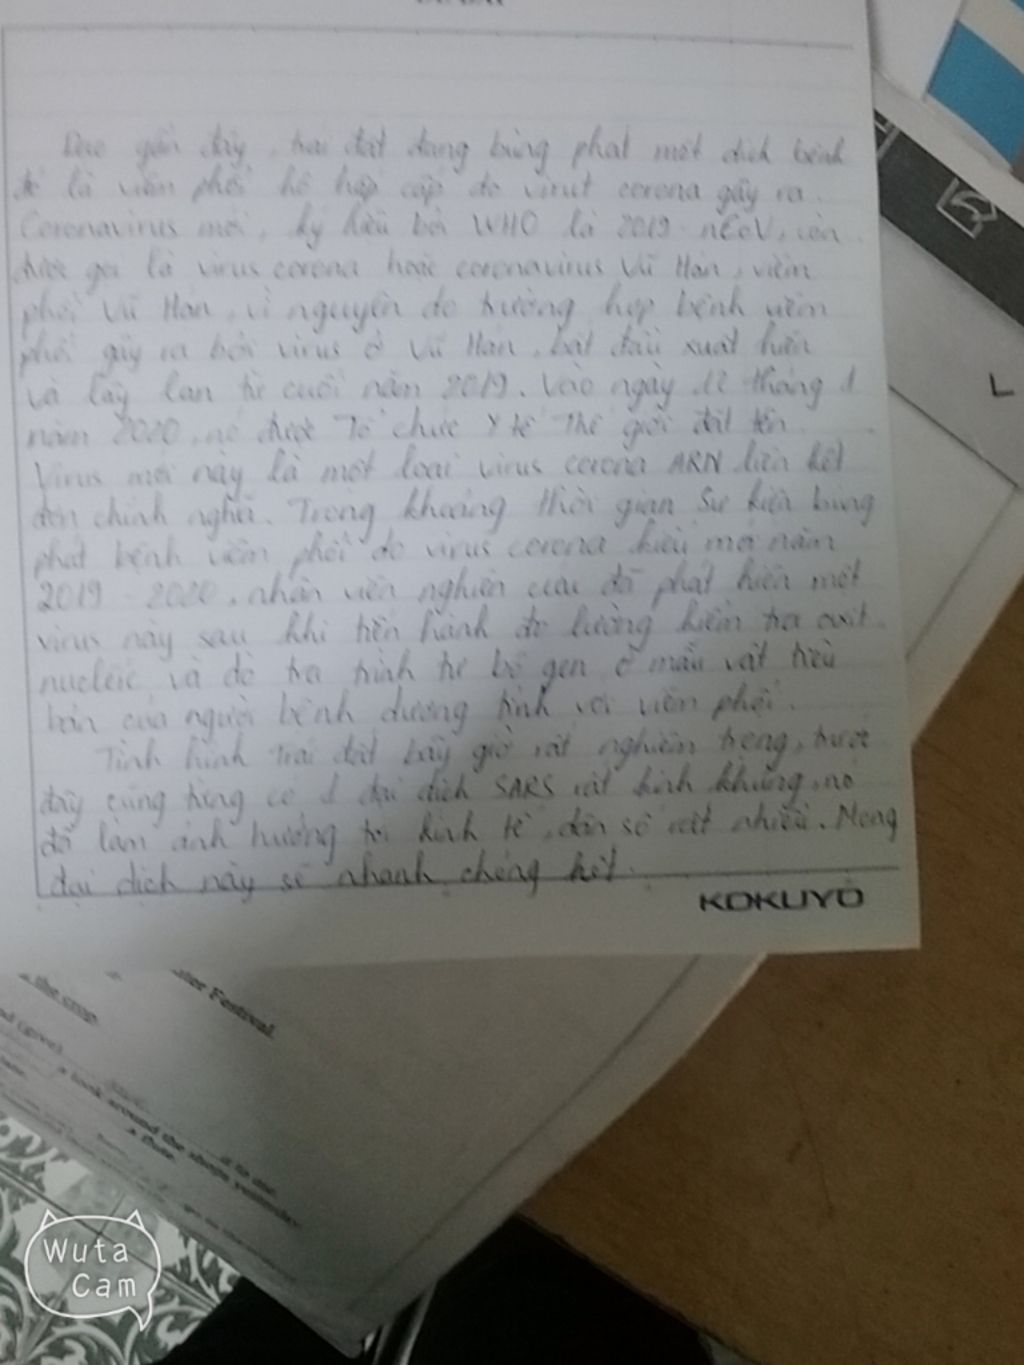 Dạo gần đây, trái đất đang bùng phát một dịch bệnh
đó là viêm phổi hô hấp cấp do virut corona gây ra.
Coronavirus mới, ký hiệu bởi WHO là 2019-nCoV, còn
được gọi là virus corona hoặc coronavirus Vũ Hán, viêm
phổi Vũ Hán, vì nguyên do trường hợp bệnh viêm
phổi gây ra bởi virus ở Vũ Hán, bắt đầu xuất hiện
và lây lan từ cuối năm 2019. Vào ngày 12 tháng 1
năm 2020, nó được Tổ chức Y tế Thế giới đặt tên.
Virus mới này là một loại virus corona ARN liên kết
đơn chính nghĩa. Trong khoảng thời gian Sự kiện bùng
phát bệnh viêm phổi do virus corona kiểu mới năm
2019 - 2020, nhân viên nghiên cứu đã phát hiện một
virus này sau khi tiến hành đo lường kiểm tra axit
nucleic và dò tra trình tự bộ gen ở mẫu vật tiêu
bản của người bệnh dương tính với viêm phổi.
Tình hình Trái đất bây giờ rất nghiêm trọng, trước
đây cũng từng có 1 đại dịch SARS rất kinh khủng, nó
đã làm ảnh hưởng tới kinh tế, dân số rất nhiều. Mong
đại dịch này sẽ nhanh chóng hết.
KOKUYO
ter Festival.
the crop.
(give)
a look around the
a there.
L
Wuta
Cam